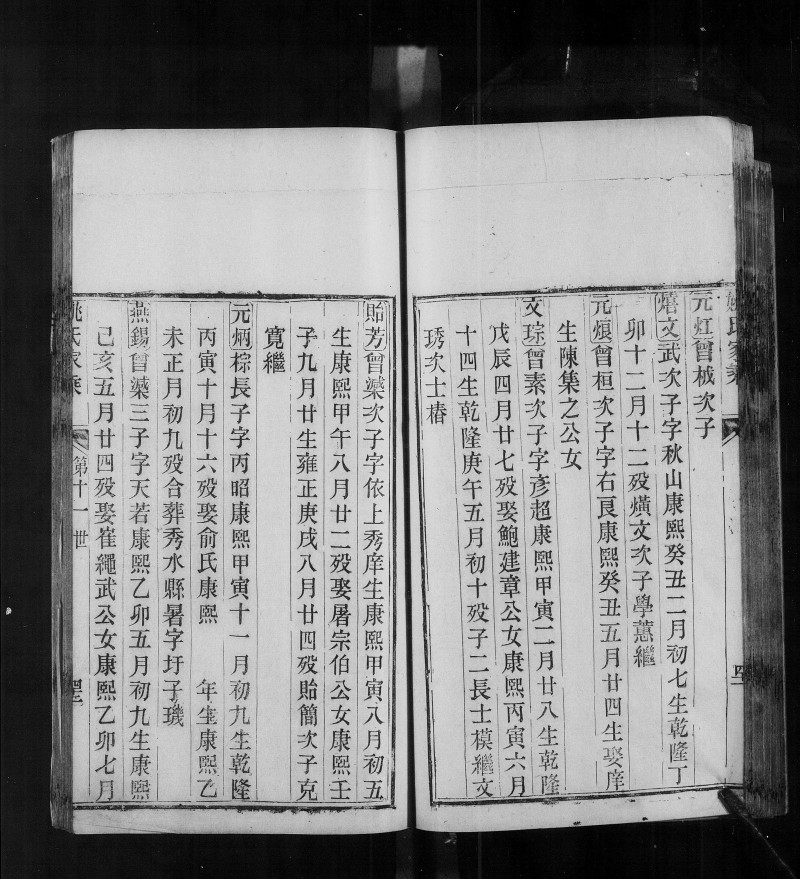 姚氏家乘
元炡曾棫次子
熺文武次子字秋山康熙癸丑二月初七生乾隆丁
卯十二月十二歿熿文次子學蕙繼
元烺曾桓次子字右良康熙癸丑五月廿四生娶庠
生陳集之公女
文琮曾素次子字彥超康熙甲寅二月廿八生乾隆
戊辰四月廿七歿娶鮑建章公女康熙丙寅六月
十四生乾隆庚午五月初十歿子二長士模繼文
琇次士椿
貽芳曾櫱次子字依上秀庠生康熙甲寅八月初五
生康熙甲午八月廿二歿娶屠宗伯公女康熙壬
子九月廿生雍正庚戌八月廿四歿貽簡次子克
寬繼
元炳棕長子字丙昭康熙甲寅十一月初九生乾隆
丙寅十月十六歿娶俞氏康熙 年生康熙乙
未正月初九歿合葬秀水縣暑字圩子璣
燕錫曾櫱三子字天若康熙乙卯五月初九生康熙
己亥五月廿四歿娶崔繩武公女康熙乙卯七月
姚氏家乘 第十一世